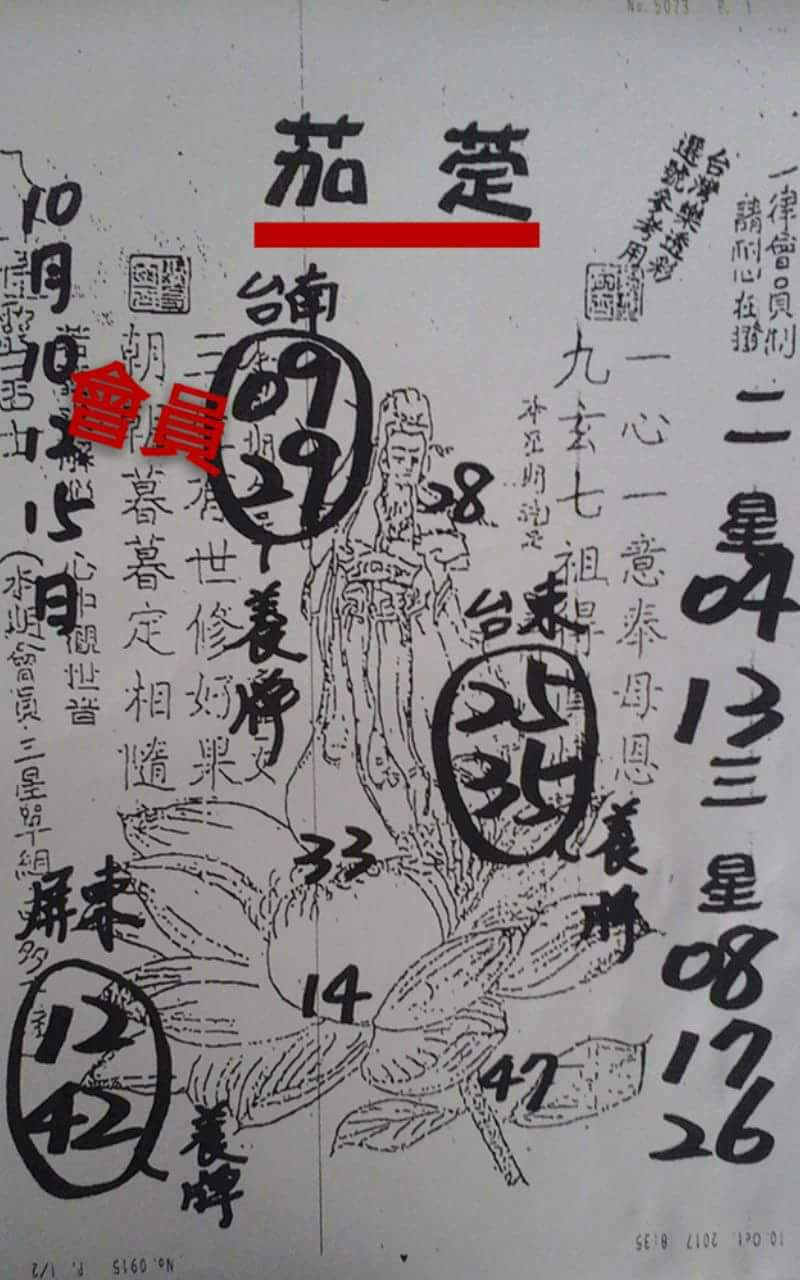 No. 5073 P. 1
茄 萣
台灣樂透彩
選號參考用
一律會員制
請耐心在撥
二星
04
13
三星
08
17
26
10月10 12 15日
會員
台南
09
29
養牌
28
台東
25
35
養牌
33
14
47
屏東
12
42
養牌
一心一意奉母恩
九玄七祖得
三 有世修好果
朝朝暮暮定相隨
心中觀世音
(本期會員三星單組
10. Oct. 2017 8:35
No. 0915 P. 1/2